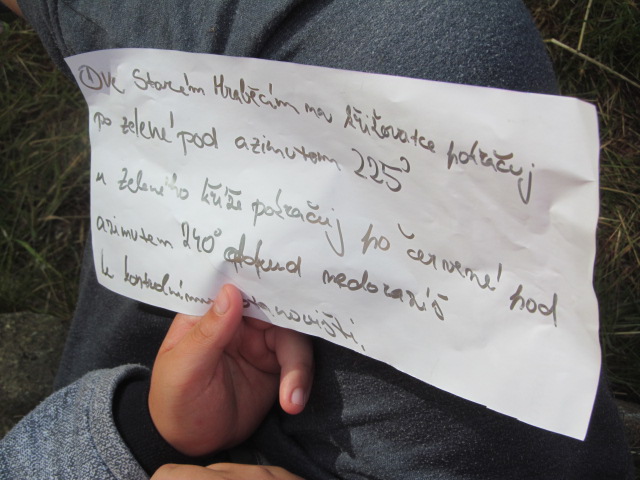 ① Ve Starém Hraběcím na křižovatce pokračuj
po zelené pod azimutem 225°
u zeleného kříže pokračuj po červené pod
azimutem 240° dokud nedorazíš
k kontrolnímu stanovišti.